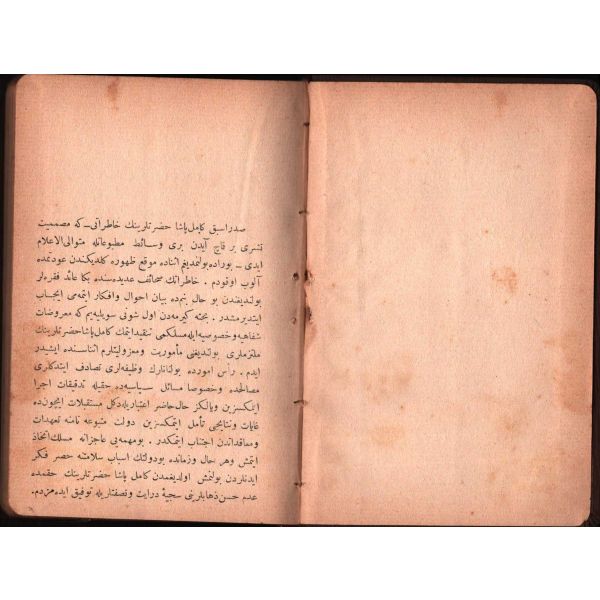 صدر اسبق كامل پاشا حضرتلرينك خاطراتی ـ كه مصممیت
نشری بر قاچ آیدن بری وسائط مطبوعاتله متوالی الاعلام
ایدی ـ بوراده بولنمدیغم اثناده موقع ظهوره كلدیكندن عودتمده
آلوب اوقودم . خاطراتك صحائف عدیده‌سنده بكا عائد فقره‌لر
بولندیغندن بو حال بنم‌ده بیان احوال وافكار ایتمه‌می ایجاب
ایتدیرمشدر . بحثه كیرمه‌دن اول شونی سویلیه‌یم كه معروضات
شفاهیه وخصوصیه ایله مسلكمی تنقید ایتمك كامل پاشا حضرتلرینك
ملتزملری بولندیغنی مأموریت ومعزولیتلرم اثناسنده ایشیدر
ایدم . رأس اموردە بولنانلرك وظیفه‌لری تصادف ایتدكلری
مصالحده وخصوصا مسائل سیاسیه‌ده حقیله تدقیقات اجرا
ایتمكسزین ویالكز حال حاضر اعتباریله دكل مستقبلات ایچون‌ده
غایات ونتایجی تأمل ایتمكسزین دولت متبوعه نامنه تعهدات
ومعاقداتدن اجتناب ایتمكدر . بو مهمه‌یی عاجزانه مسلك اتخاذ
ایتمش وهر حال وزمانده بو دولتك اسباب سلامتنه حصر فكر
ایدنلردن بولنمش اولدیغمدن كامل پاشا حضرتلرینك حقمده
عدم حسن ذهابلرینی سجیۀ درایت ونصفتلریله توفیق ایده‌مزدم .